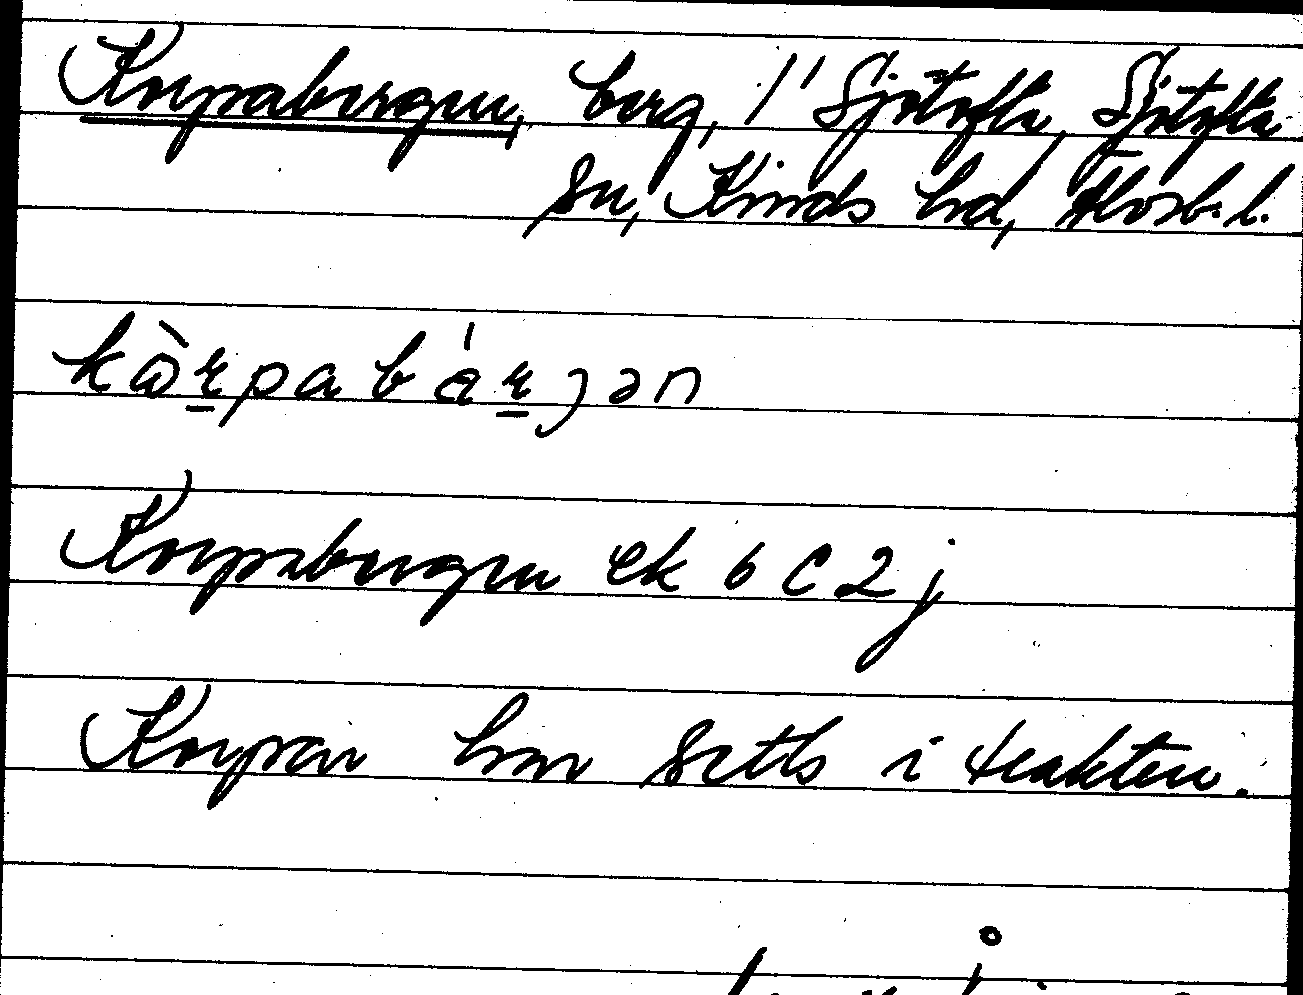 Korpabergen, berg, 1/1 Sjötofta, Sjötofta
sn, Kinds hd, Älvsb. l.
kɷ̀ɽpabáɽjən
Korpabergen ek 6 C 2 j
Korpar har setts i trakten.